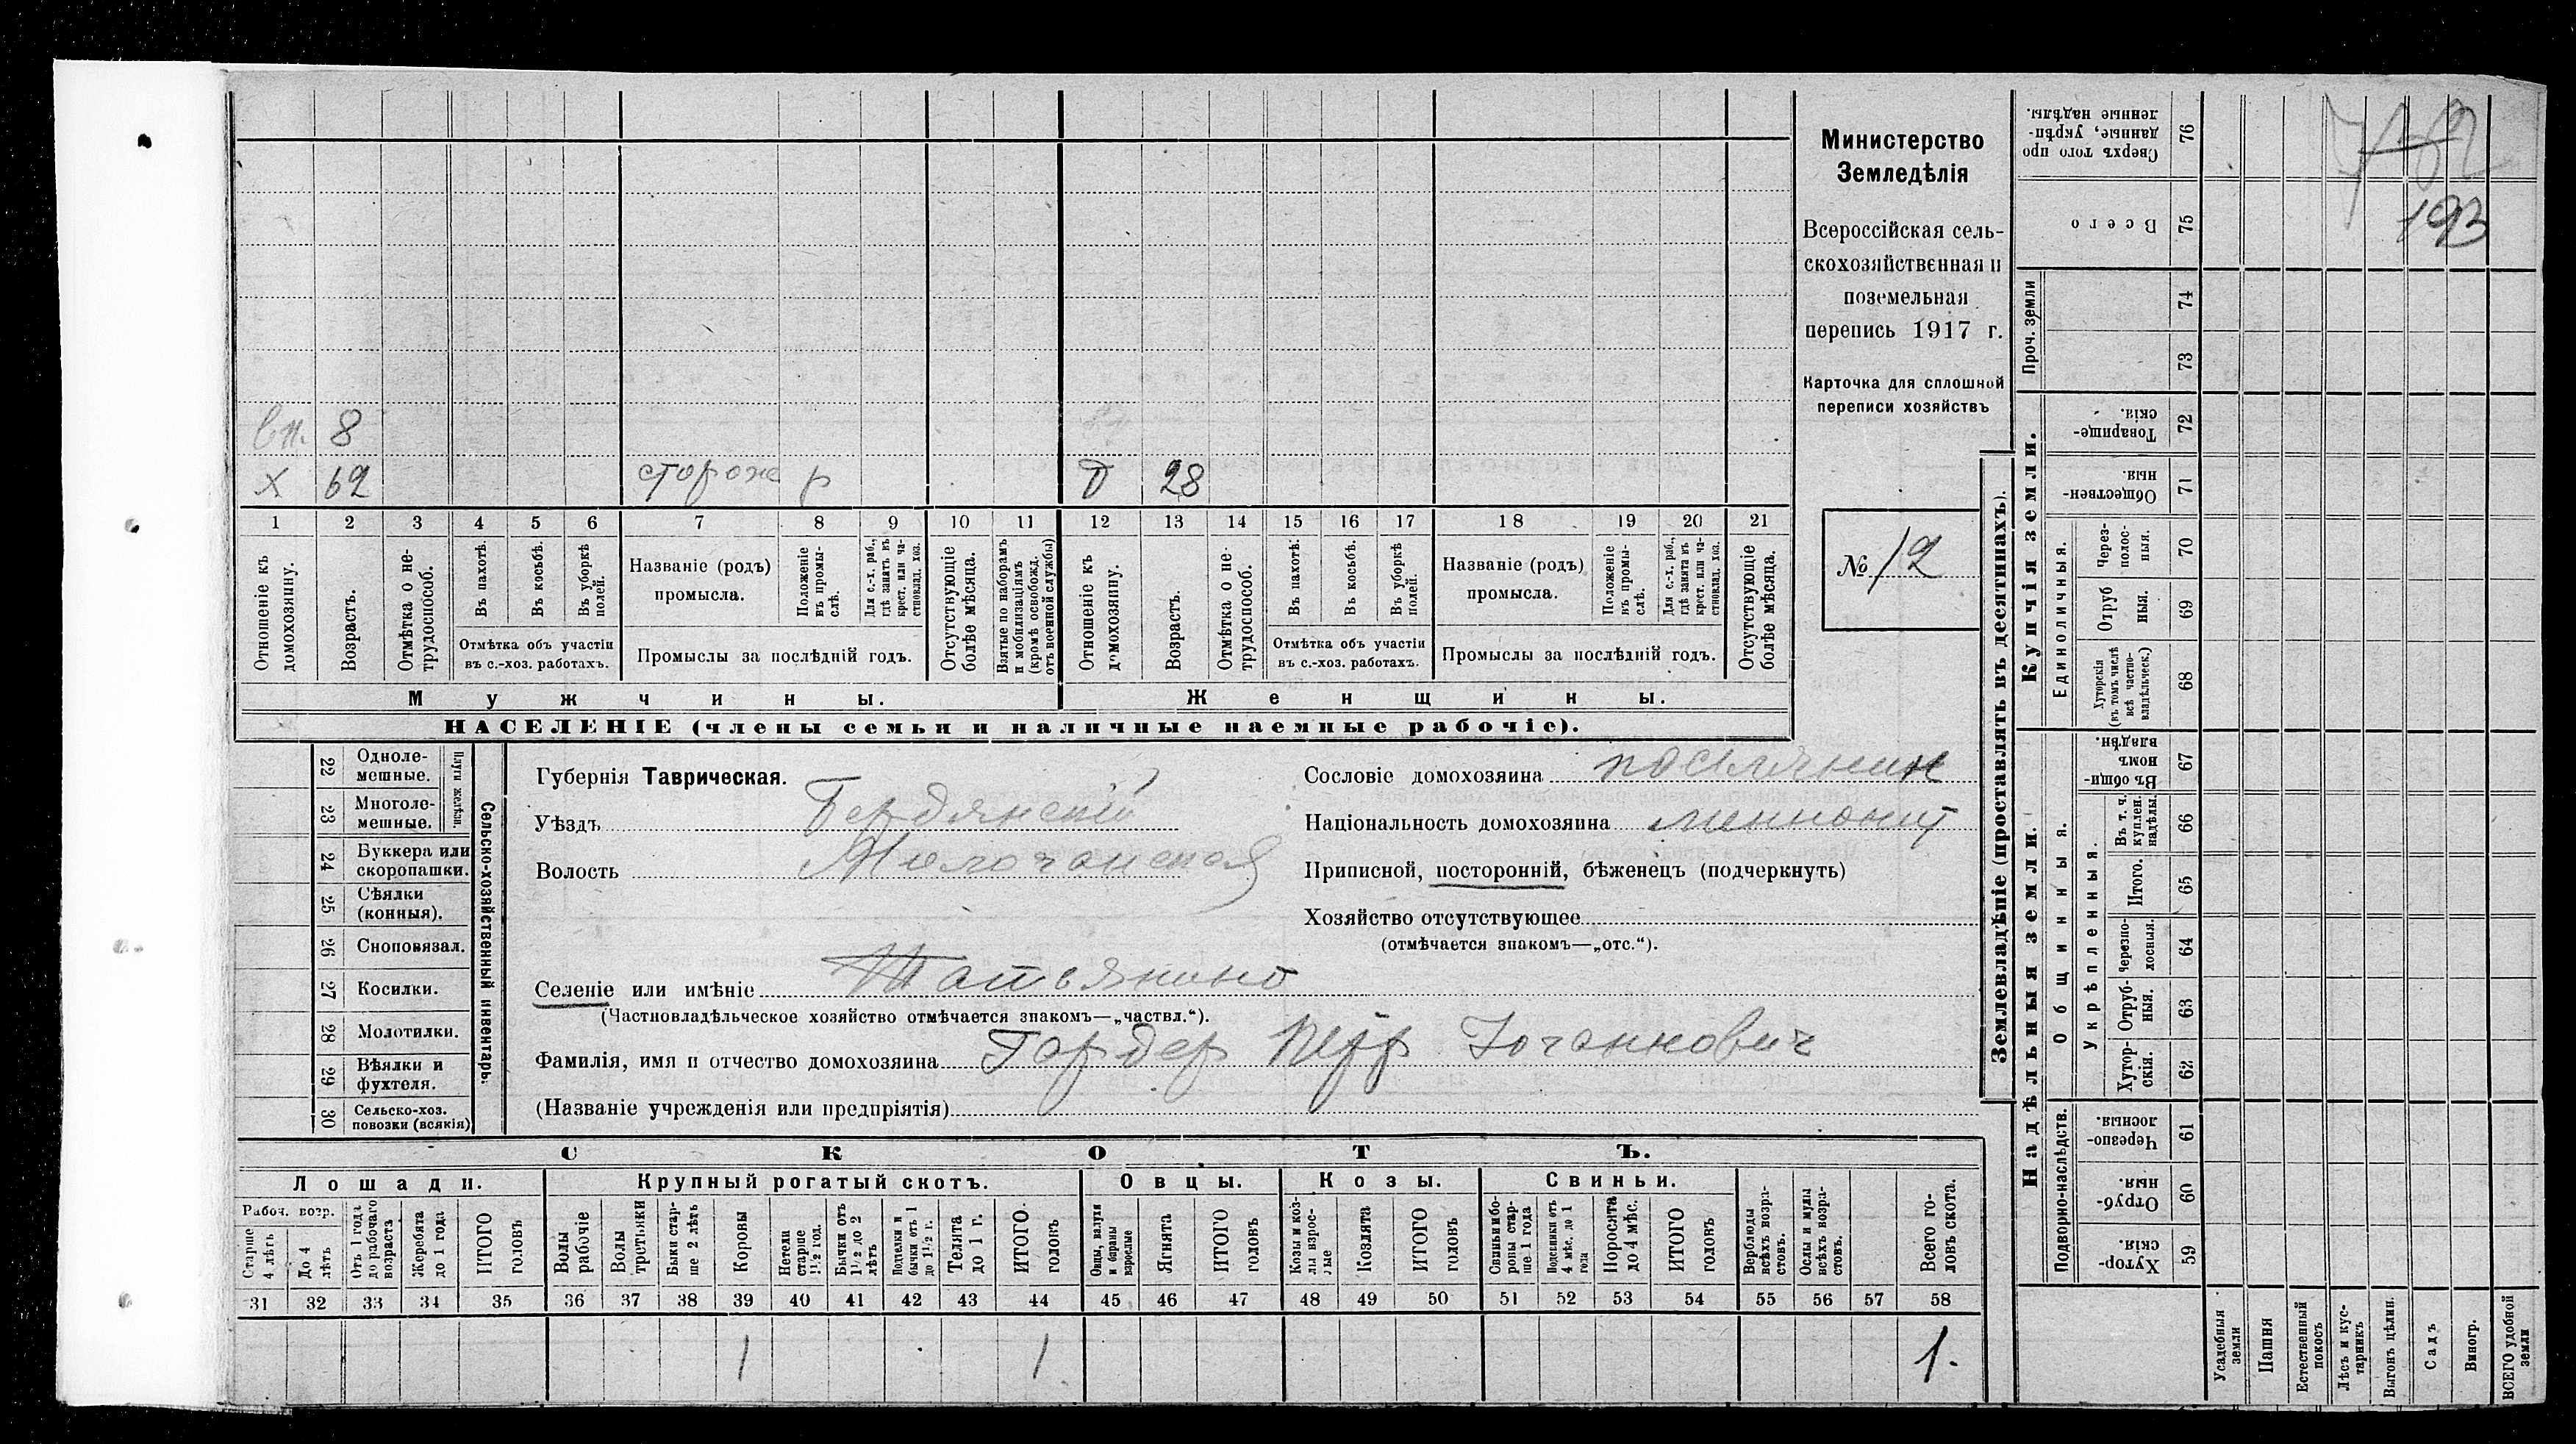 вн. 8
х 62 сторож р Д 28
1 2 3 4 5 6 7 8 9 10 11 12 13 14 15 16 17 18 19 20 21
Отношеніе къ домохозяину.
Возрастъ.
Отмѣтка о не-трудоспособ.
Въ пахотѣ.
Въ косьбѣ.
Въ уборкѣ полей.
Отмѣтка объ участіи
въ с.-хоз. работахъ.
Названіе (родъ)
промысла.
Положеніе въ промы-слѣ.
Для с.-х. раб., гдѣ занятъ въ крест. или ча-стновлад. хоз.
Промыслы за послѣдній годъ.
Отсутствующіе болѣе мѣсяца.
Взятые по наборамъ и мобилизаціямъ (кромѣ освобожд. отъ военной службы)
Отношеніе къ домохозяину.
Возрастъ.
Отмѣтка о не-трудоспособ.
Въ пахотѣ.
Въ косьбѣ.
Въ уборкѣ полей.
Отмѣтка объ участіи
въ с.-хоз. работахъ.
Названіе (родъ)
промысла.
Положеніе въ промы-слѣ.
Для с.-х. раб., гдѣ занята въ крест. или ча-стновлад. хоз.
Промыслы за послѣдній годъ.
Отсутствующіе болѣе мѣсяца.
Мужчины. Женщины.
НАСЕЛЕНІЕ (члены семьи и наличные наемные рабочіе).
Министерство
Земледѣлія
Всероссійская сель-
скохозяйственная и
поземельная
перепись 1917 г.
Карточка для сплошной
переписи хозяйствъ
№ 12
22 Одноле-мешные.
23 Многоле-мешные.
Плуги желѣзн.
24 Буккера или скоропашки.
25 Сѣялки (конныя).
26 Сноповязал.
27 Косилки.
28 Молотилки.
29 Вѣялки и фухтеля.
30 Сельско-хоз. повозки (всякія)
Сельско-хозяйственный инвентарь.
Губернія Таврическая.
Уѣздъ Бердянскій
Волость Молочанская
Сословіе домохозяина поселянин
Національность домохозяина меннонит
Приписной, посторонній, бѣженецъ (подчеркнуть)
Хозяйство отсутствующее
(отмѣчается знакомъ—„отс.“).
Селеніе или имѣніе Татьянино
(Частновладѣльческое хозяйство отмѣчается знакомъ—„частвл.“).
Фамилія, имя и отчество домохозяина Гардер Петр Иоганнович
(Названіе учрежденія или предпріятія)
СКОТЪ.
Лошади. Крупный рогатый скотъ. Овцы. Козы. Свиньи.
Рабоч. возр.
Старше 4 лѣтъ
До 4 лѣтъ
Отъ 1 года до рабочаго возраста
Жеребята до 1 года
ИТОГО головъ
Волы рабочіе
Волы третьяки
Быки стар-ше 2 лѣтъ
Коровы
Нетели старше 1½ год.
Бычки отъ 1½ до 2 лѣтъ
Подтелки и бычки отъ 1 до 1½ г.
Телята до 1 г.
ИТОГО головъ
Овцы, валухи и бараны взрослые
Ягнята
ИТОГО головъ
Козы и коз-лы взрос-лые
Козлята
ИТОГО головъ
Свиньи и бо-ровы стар-ше 1 года
Подсвинки отъ 4 мѣс. до 1 года
Поросята до 4 мѣс.
ИТОГО головъ
Верблюды всѣхъ возра-стовъ.
Ослы и мулы всѣхъ возра-стовъ.
Всего го-ловъ скота.
31 32 33 34 35 36 37 38 39 40 41 42 43 44 45 46 47 48 49 50 51 52 53 54 55 56 57 58
1 1 1.
Землевладѣніе (проставлять въ десятинахъ).
Купчія земли.
Надѣльныя земли.
Сверхъ того про данные, укрѣп-ленные надѣлы. 76
Всего 75
Проч. земли 74 73
Товарище-скія. 72
Обществен-ныя 71
Единоличныя.
Через-полос-ныя. 70
Отруб ныя. 69
Хуторскія (въ томъ числѣ всѣ частно-владѣльческ.) 68
Общинныя.
Въ общи-номъ владѣн. 67
Укрѣпленныя.
Въ т. ч. куплен. надѣлы. 66
Итого. 65
Черезпо-лосныя. 64
Отруб-ныя. 63
Хутор-скія. 62
Подворно-наслѣдств.
Черезпо-лосныя. 61
Отруб-ныя. 60
Хутор-скія. 59
Усадебныя земли
Пашня
Естественный покосъ
Лѣсъ и кус-тарникъ
Выгонъ цѣлин.
Садъ
Виногр.
ВСЕГО удобной земли
193